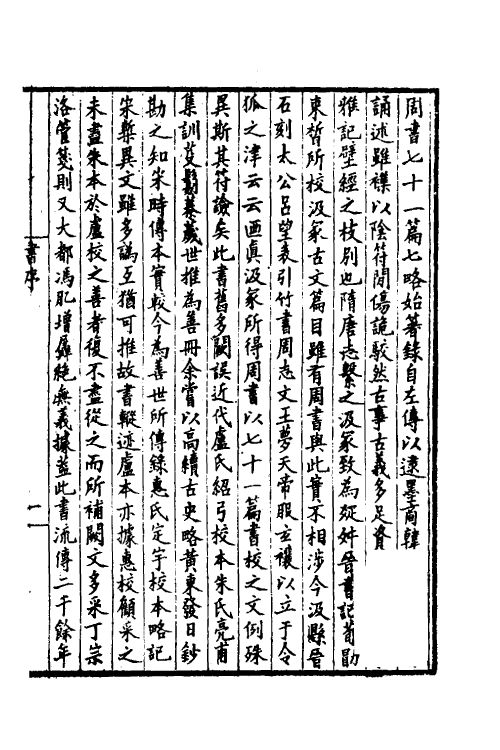 周書七十一篇七略始箸錄自左傳以逮墨商韓
誦述雖襍以陰符閒傷詭駮然古事古義多足資
雅記壁經之枝別也隋唐志繫之汲冢致為疏舛晉書記荀勖
束晳所校汲冢古文篇目雖有周書與此實不相涉今汲縣晉
石刻太公呂望表引竹書周志文王夢天帝服玄禳以立于令
狐之津云云𠧧真汲冢所得周書以七十一篇書校之文例殊
異斯其符譣矣此書舊多闕誤近代盧氏紹弓校本朱氏亮甫
集訓芟鬄蓁薉世推為善冊余嘗以高續古史略黃東發日鈔
勘之知宋時傳本實較今為善世所傳錄惠氏定宇校本略記
宋槧異文雖多譌互猶可推故書輗迹盧本亦據惠校顧采之
未盡朱本於盧校之善者復不盡從之而所補闕文多采丁宗
洛管箋則又大都馮肊增羼絕無義據蓋此書流傳二千餘年
書序
一